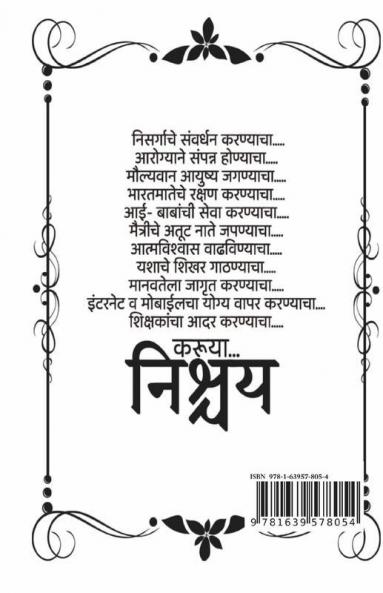 निसर्गाचे संवर्धन करण्याचा.....
आरोग्याने संपन्न होण्याचा.....
मौल्यवान आयुष्य जगण्याचा.....
भारतमातेचे रक्षण करण्याचा.....
आई- बाबांची सेवा करण्याचा.....
मैत्रीचे अतूट नाते जपण्याचा.....
आत्मविश्वास वाढविण्याचा.....
यशाचे शिखर गाठण्याचा.....
मानवतेला जागृत करण्याचा.....
इंटरनेट व मोबाईलचा योग्य वापर करण्याचा....
शिक्षकांचा आदर करण्याचा.....
करूया...
निश्चय
ISBN 978-1-63957-805-4
9 781639 578054